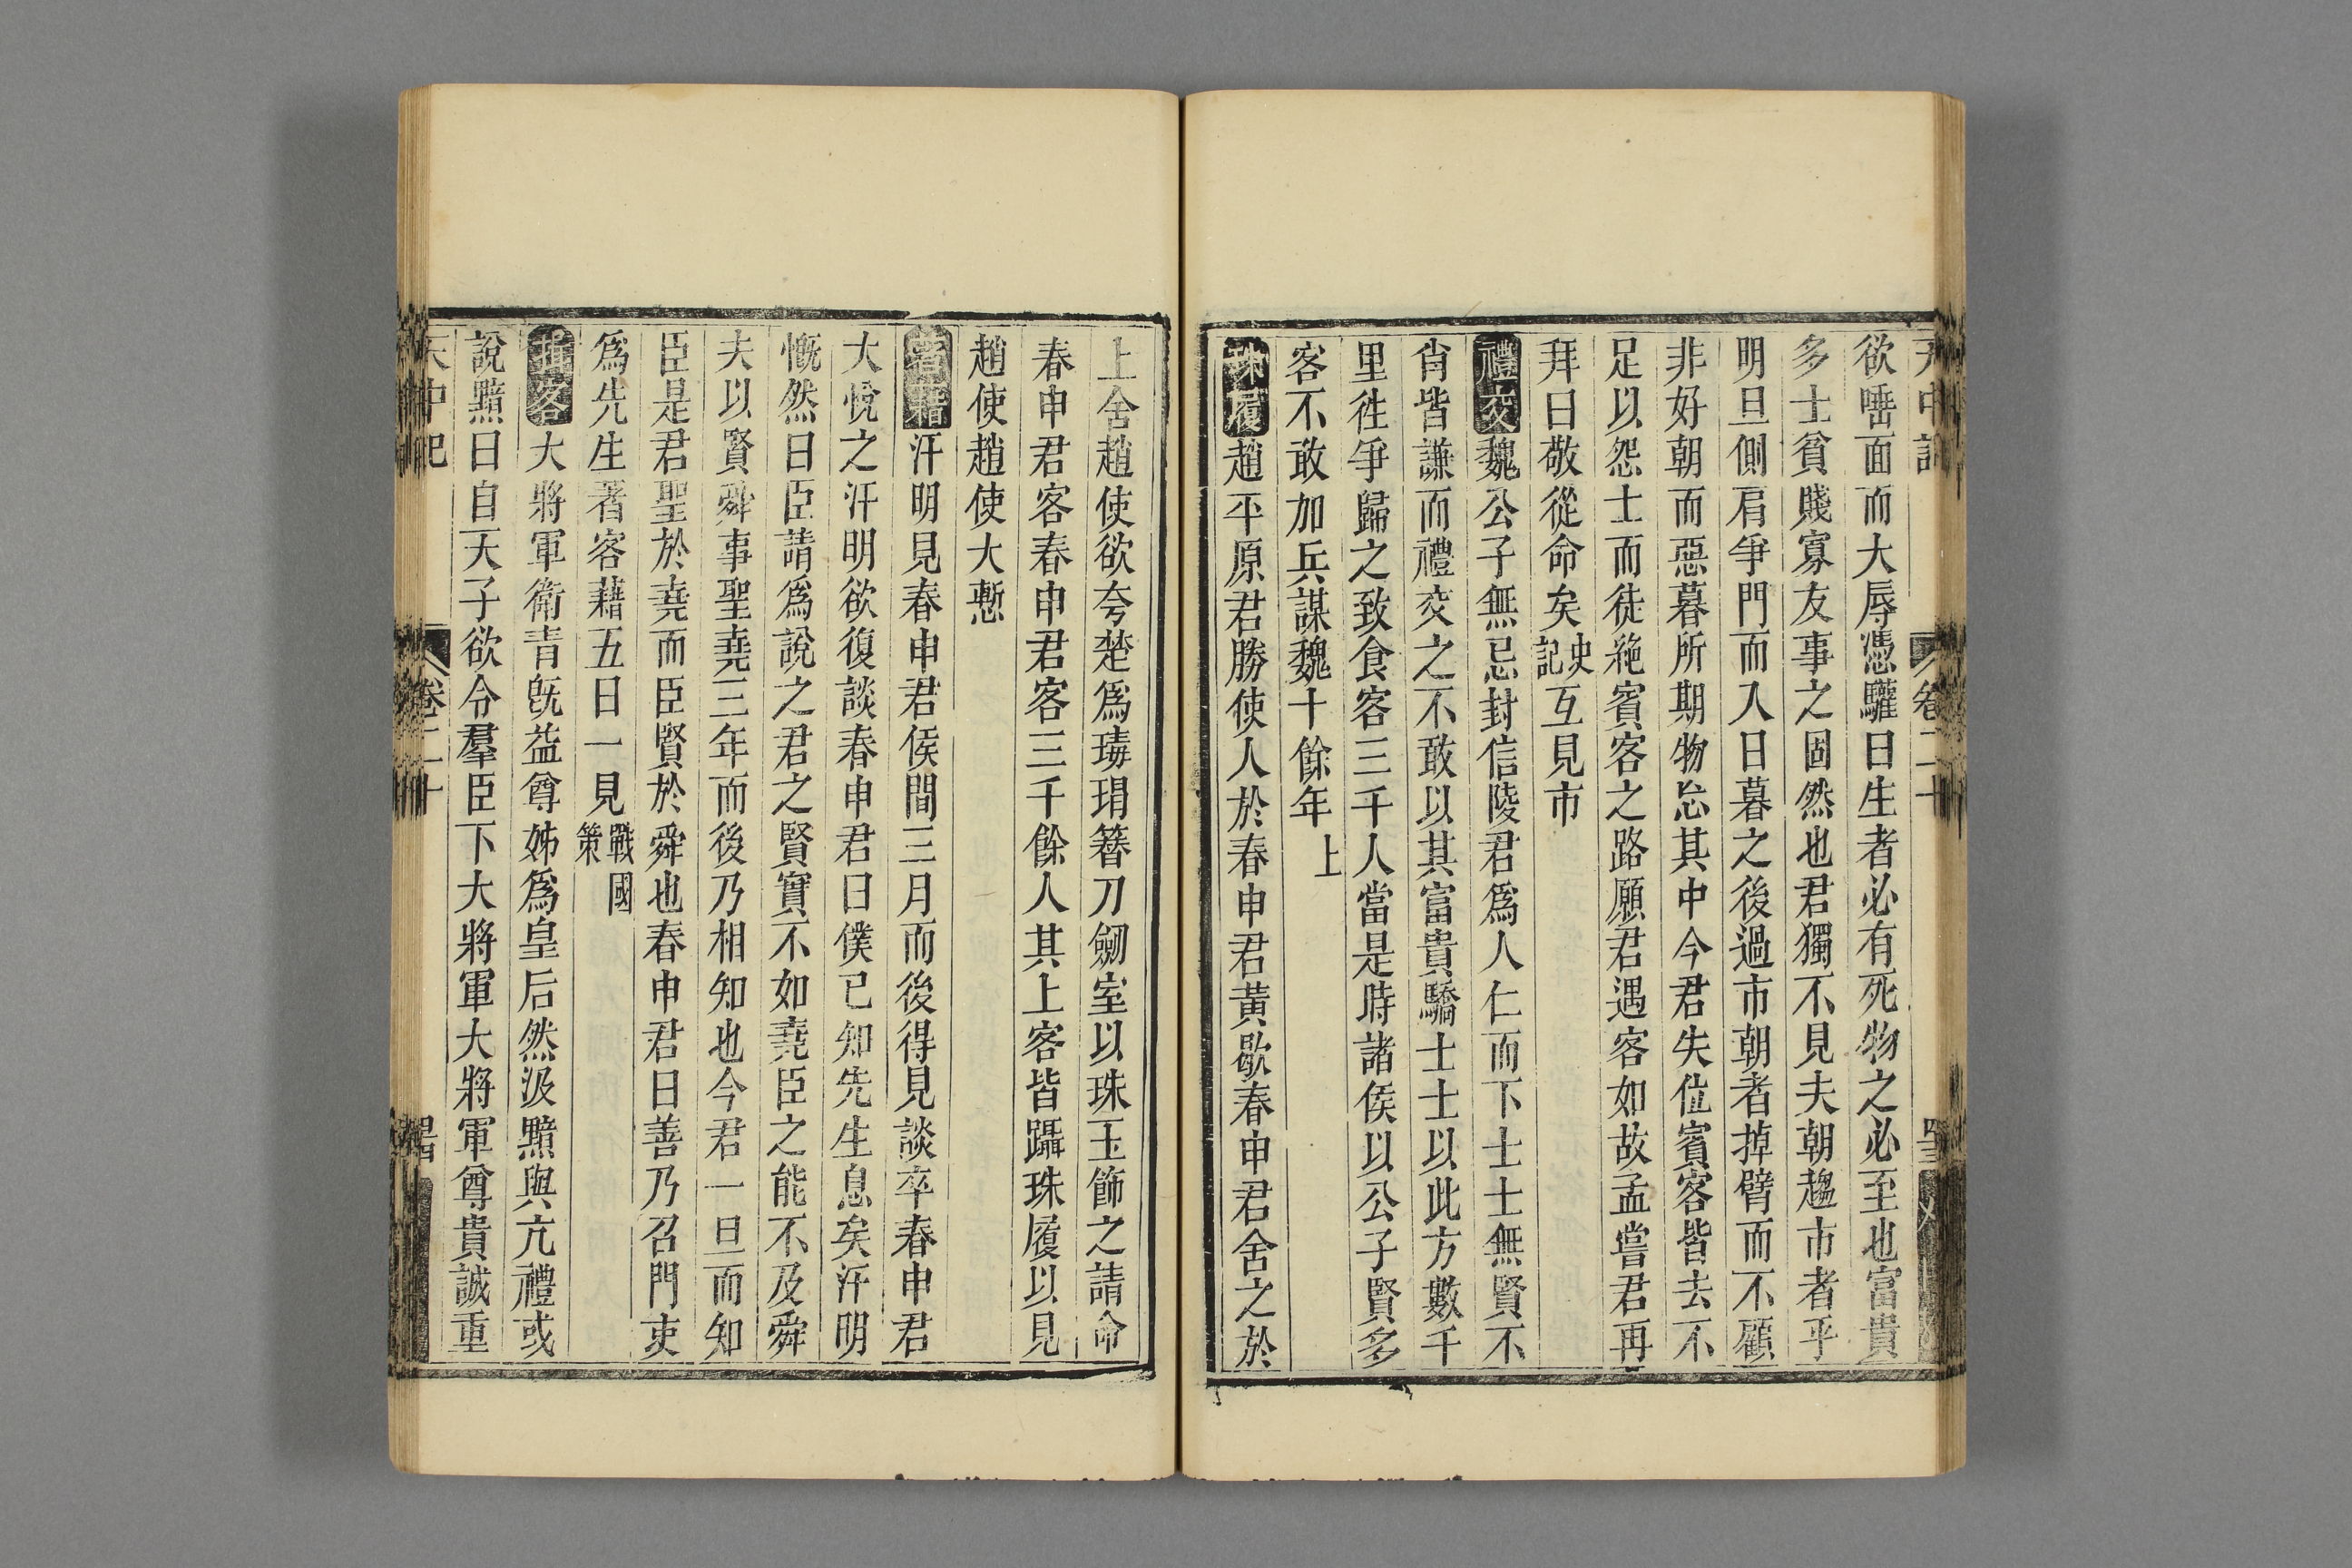 天中記 卷二十
欲唾面而大辱憑驩曰生者必有死物之必至也富貴
多士貧賤寡友事之固然也君獨不見夫朝趨市者乎
明旦側肩爭門而入日暮之後過市朝者掉臂而不顧
非好朝而惡暮所期物忘其中今君失位賓客皆去不
足以怨士而徒絶賓客之路願君遇客如故孟嘗君再
拜曰敬從命矣史記互見市
禮交魏公子無忌封信陵君爲人仁而下士士無賢不
肖皆謙而禮交之不敢以其富貴驕士士以此方數千
里徃爭歸之致食客三千人當是時諸侯以公子賢多
客不敢加兵謀魏十餘年上
珠履趙平原君勝使人於春申君黃歇春申君舍之於
上舍趙使欲夸楚爲瑇瑁簪刀劒室以珠玉飾之請命
春申君客春申君客三千餘人其上客皆躡珠履以見
趙使趙使大慙
著籍汗明見春申君侯間三月而後得見談卒春申君
大悅之汗明欲復談春申君曰僕已知先生息矣汗明
慨然曰臣請爲說之君之賢實不如堯臣之能不及舜
夫以賢舜事聖堯三年而後乃相知也今君一旦而知
臣是君聖於堯而臣賢於舜也春申君曰善乃召門吏
爲先生著客藉五日一見戰國策
揖客大將軍衛青旣益尊姊爲皇后然汲黯與亢禮或
說黯曰自天子欲令羣臣下大將軍大將軍尊貴誠重
天中記 卷二十